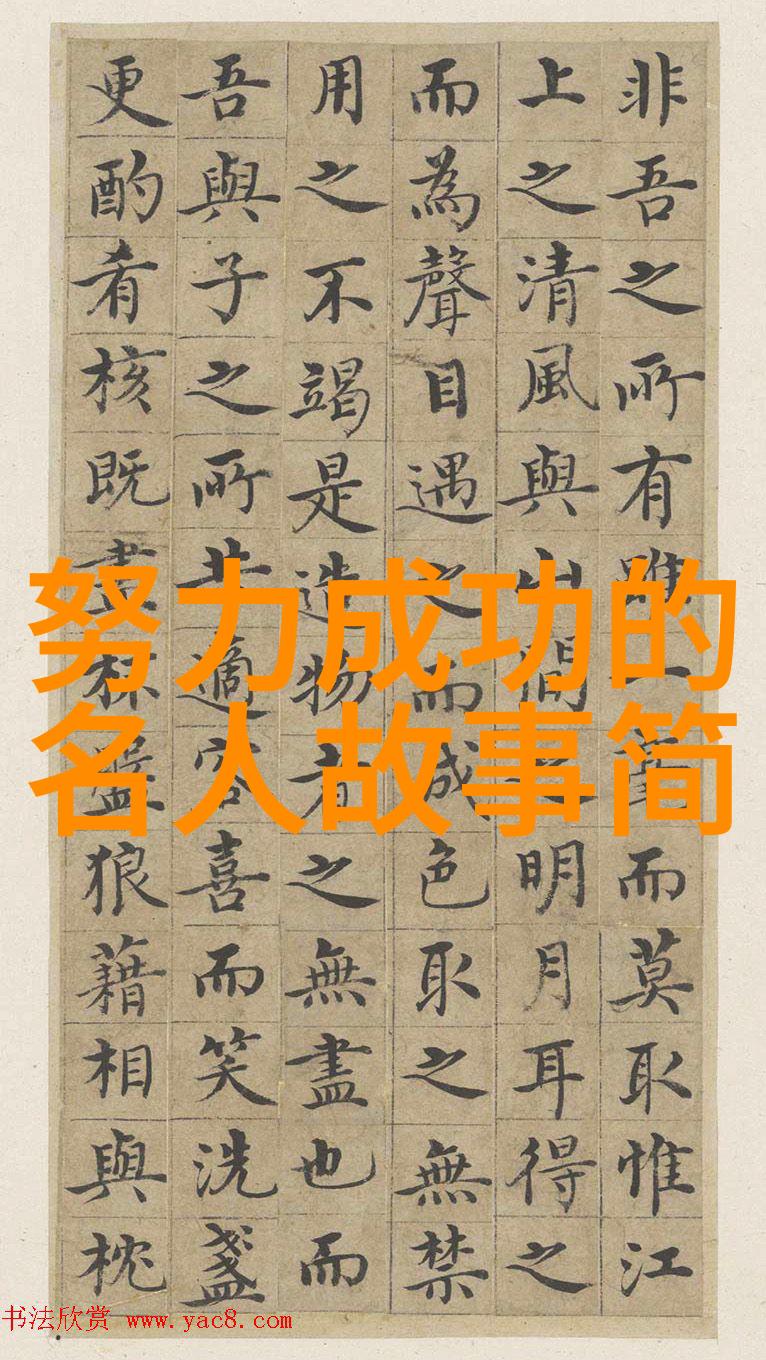 非吾之所有雖一毫而莫取惟江
上之清風與山間之明月耳得之
而為聲目遇之而成色取之無禁
用之不竭是造物者之無盡也而
吾與子之所共適客喜而笑洗盞
更酌肴核既盡杯盤狼藉相與枕
努力成功的
名人故事简
书法欣赏 www.yac8.com